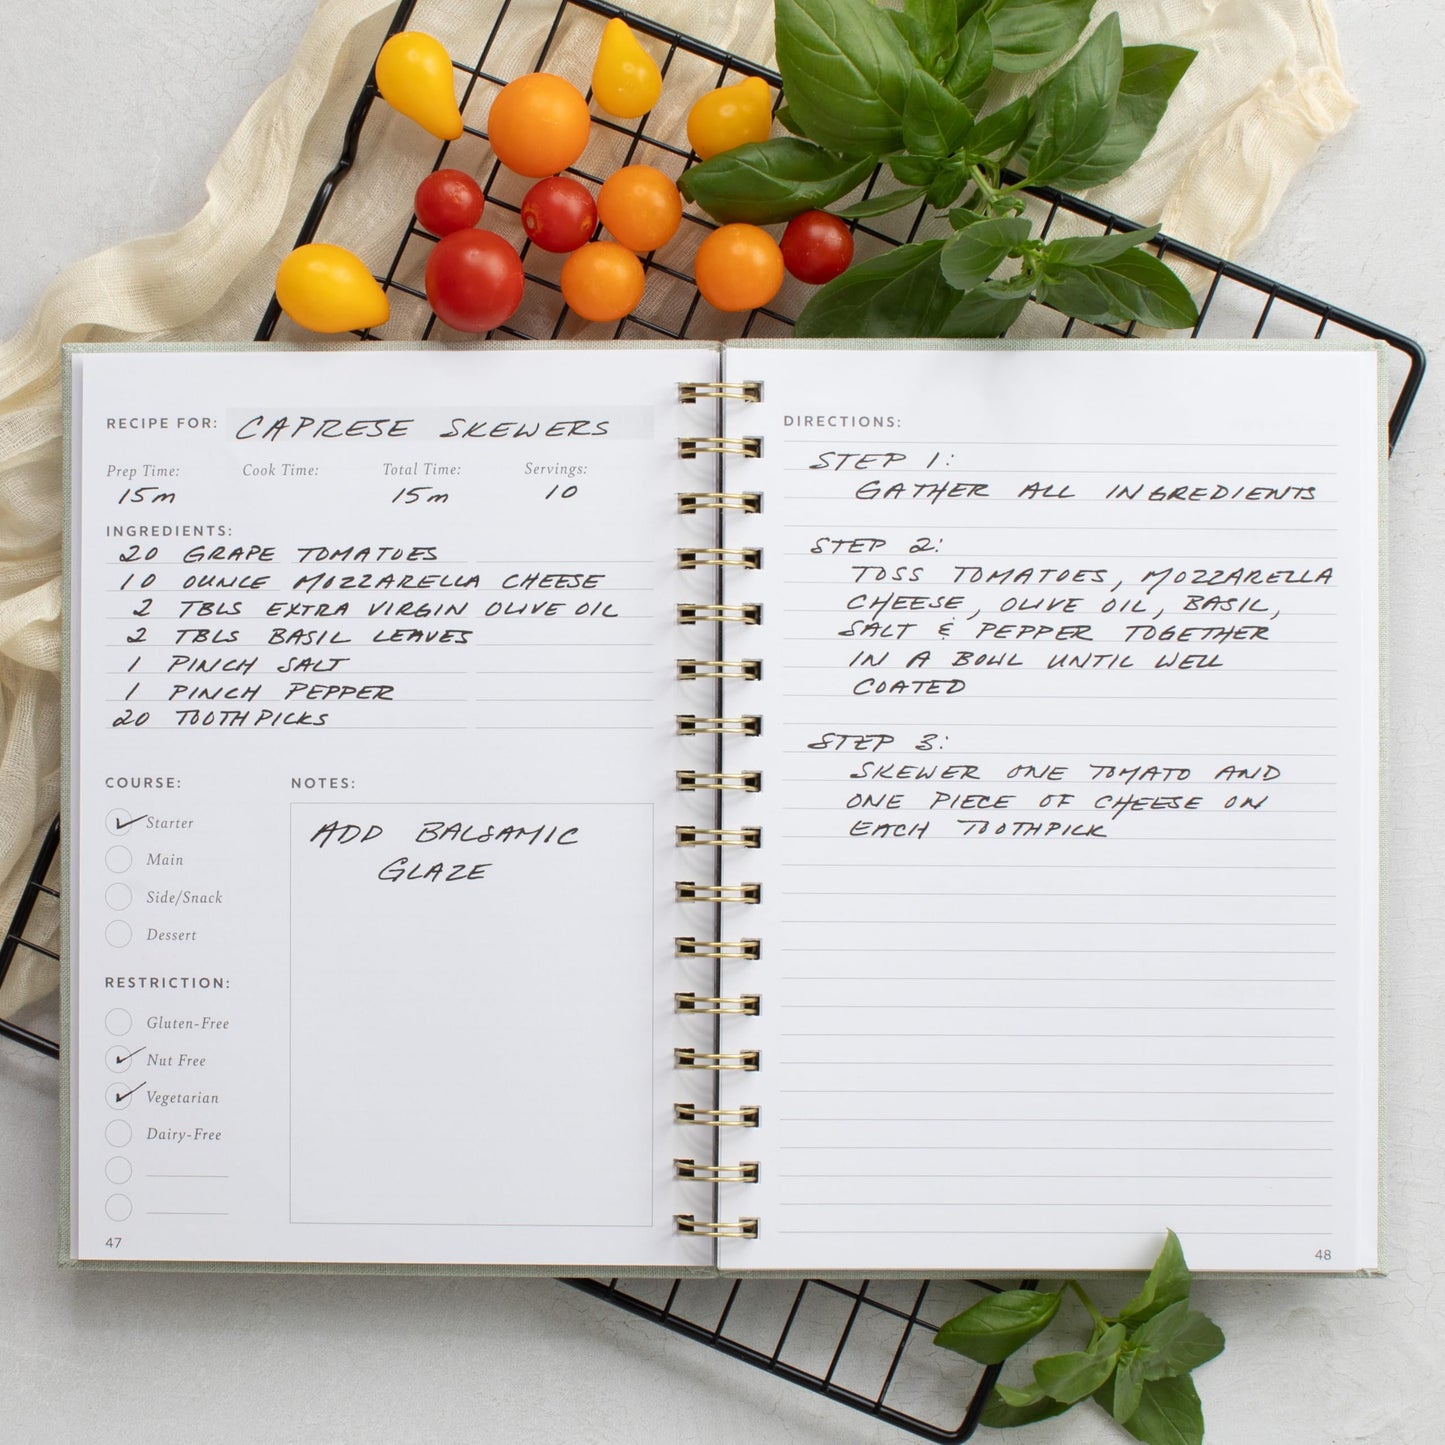 RECIPE FOR: CAPRESE SKEWERS
Prep Time: Cook Time: Total Time: Servings:
15m 15m 10
INGREDIENTS:
20 GRAPE TOMATOES
10 OUNCE MOZZARELLA CHEESE
2 TBLS EXTRA VIRGIN OLIVE OIL
2 TBLS BASIL LEAVES
1 PINCH SALT
1 PINCH PEPPER
20 TOOTHPICKS
COURSE:
Starter
Main
Side/Snack
Dessert
RESTRICTION:
Gluten-Free
Nut Free
Vegetarian
Dairy-Free
NOTES:
ADD BALSAMIC
GLAZE
47
DIRECTIONS:
STEP 1:
GATHER ALL INGREDIENTS
STEP 2:
TOSS TOMATOES, MOZZARELLA
CHEESE, OLIVE OIL, BASIL,
SALT & PEPPER TOGETHER
IN A BOWL UNTIL WELL
COATED
STEP 3:
SKEWER ONE TOMATO AND
ONE PIECE OF CHEESE ON
EACH TOOTHPICK
48